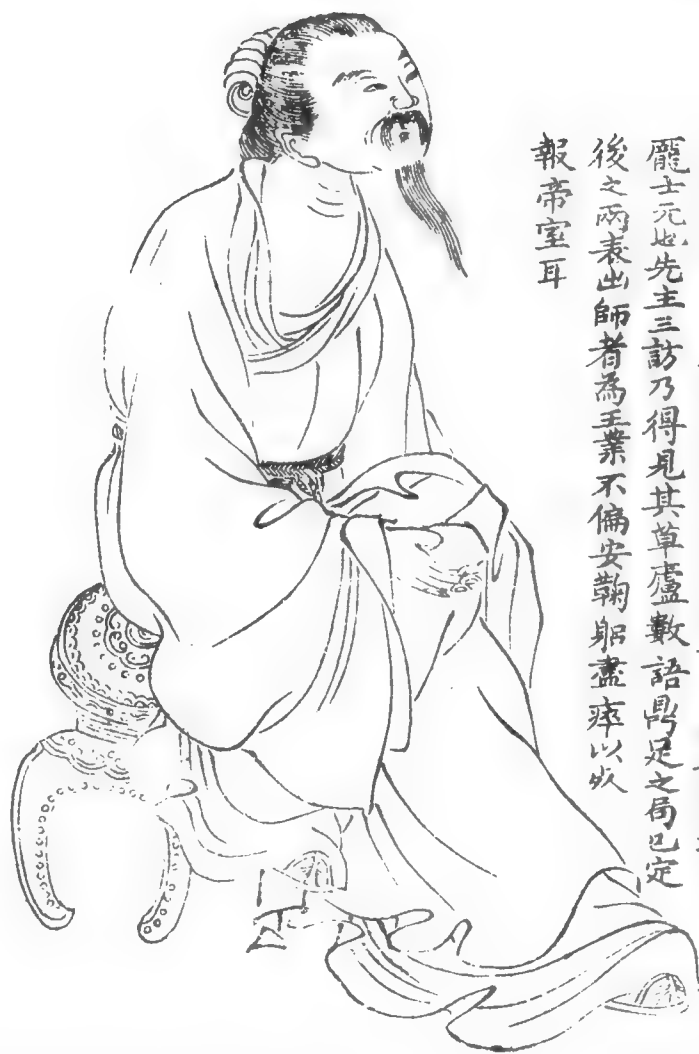 龎士元也先主三訪乃得見其草廬數語鼎足之局已定
後之兩表出師者為王業不偏安鞠躬盡瘁以死
報帝室耳